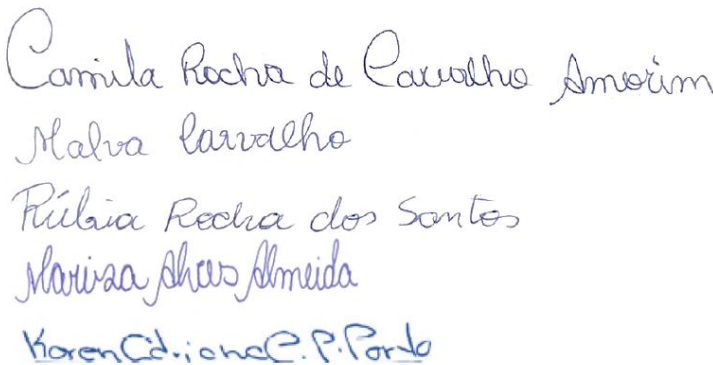 Camila Rocha de Carvalho Amorim
Malva Carvalho
Rúbia Rocha dos Santos
Mariza Alves Almeida
Karen C. P. Pardo